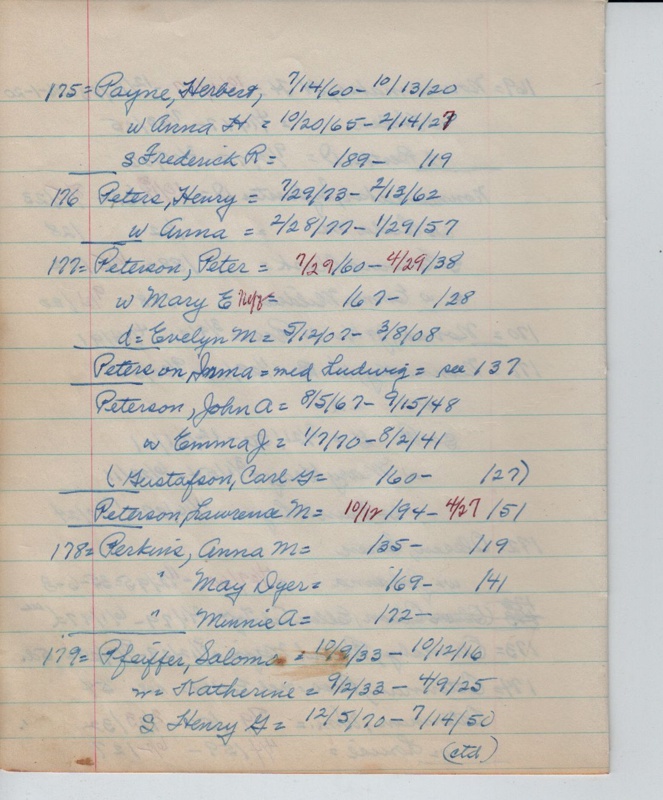 175= Payne, Herbert, 7/14/60 - 10/13/20
w Anna H = 10/20/65 - 2/14/27
s Frederick R = /89 - /19
176 Peters, Henry = 7/29/73 - 2/13/62
w Anna = 2/28/77 - 1/29/57
177= Peterson, Peter = 7/29/60 - 4/29/38
w Mary E = /67 - /28
d = Evelyn M = 5/12/07 - 3/8/08
Peterson, Inma = med Ludwig = see 137
Peterson, John A = 8/5/67 - 9/15/48
w Emma J = 1/7/70 - 8/2/41
(Gustafson, Carl G = /60 - /27)
Peterson, Lawrence M = 10/12/94 - 4/27/51
178= Perkins, Anna M = /35 - /19
" May Dyer = /69 - /41
" Minnie A = /72 -
179= Pfeiffer, Saloma = 10/9/33 - 10/12/16
w = Katherine = 9/2/33 - 4/9/25
S Henry G = 12/5/70 - 7/14/50
(ctd.)